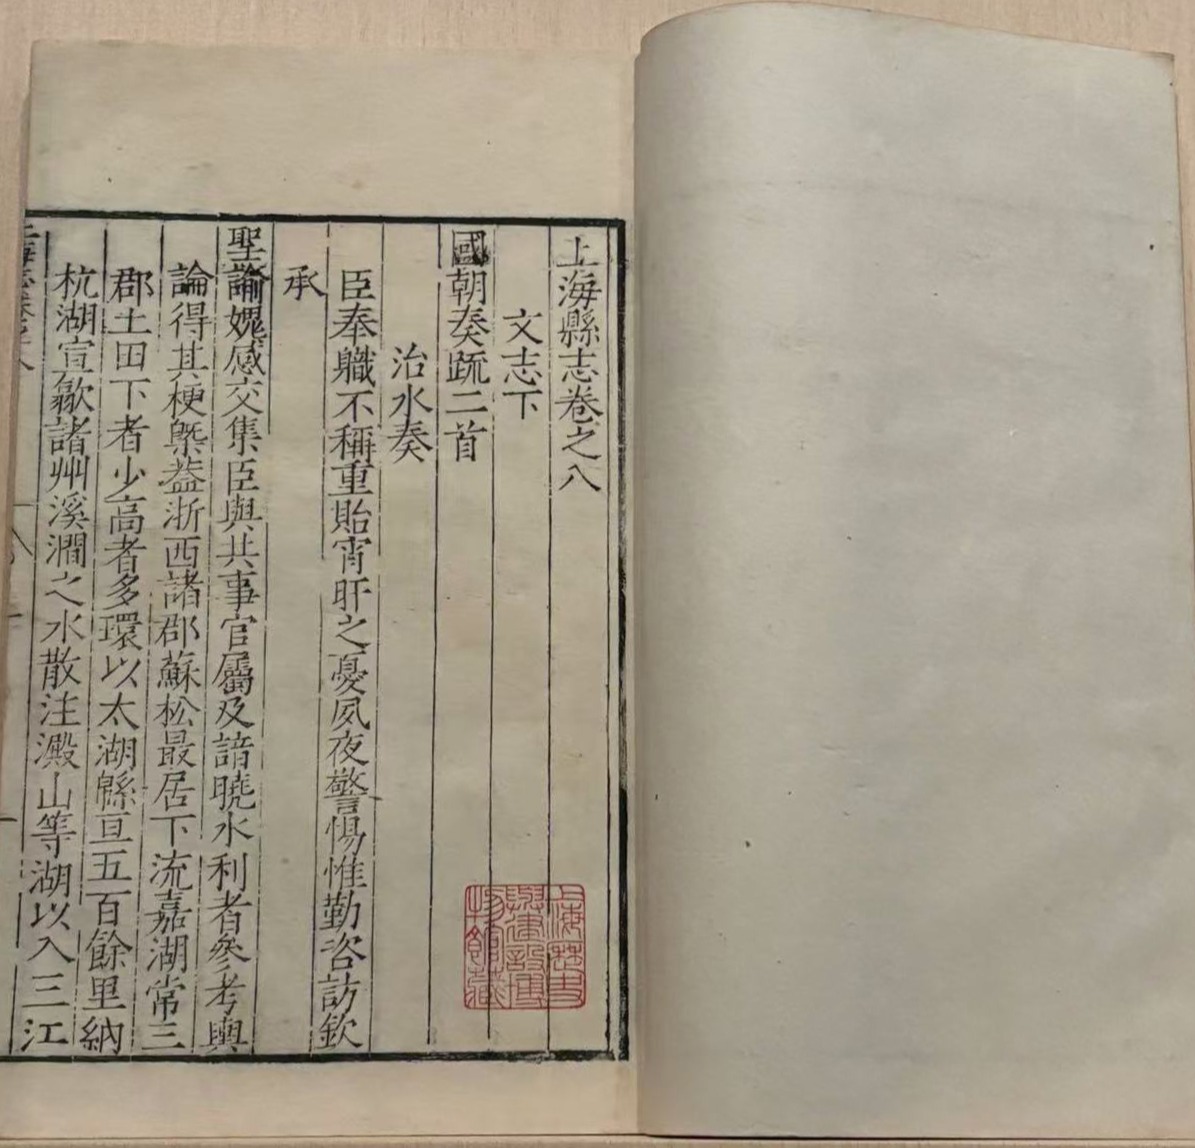 上海縣志卷之八
文志下
國朝奏疏二首
治水奏
臣奉軄不稱重貽宵旰之憂夙夜警惕惟勤咨訪欽
承
聖諭媿感交集臣與共事官屬及諳曉水利者參考輿
論得其梗槩葢浙西諸郡蘇松最居下流嘉湖常三
郡土田下者少高者多環以太湖緜亘五百餘里納
杭湖宣歙諸州溪澗之水散注澱山等湖以入三江
上海志卷之八